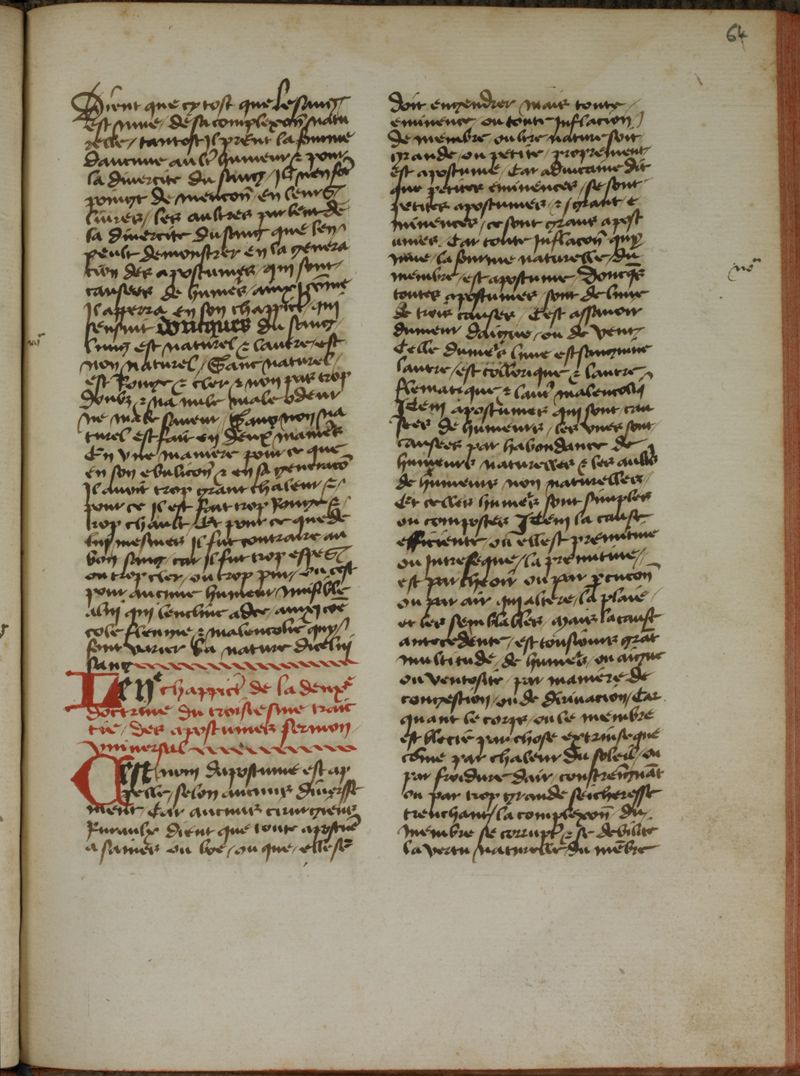 64
Dient que cy tost que le sang
est mue de sa complexon natu
relle tantost il prent la fourme
daucune aultre humeur & pour
la diversite du sang Ilz nen font
poingt de mencon en leurs
livres les aultres parlent de
la diversite du sang que len
peult demonstrer en la genera
tion des apostumes qui sont
causees de humeurs ainxi come
Il apperra en son chappitre qui
sensuit Doncques du sang
lung est naturel & lautre est
non naturel Sanc naturel
est Rouge & cler & non pas trop
doubz & na nulle male odeur
ne male saveur Sang non na
turel est fait en deux manieres
En une maniere pour ce que
en son ebulicon & en sa generacon
Il avoit trop grant chaleur &
pour ce Il est fait trop Rouge &
trop chault Et pour ce que de
luy mesmes Il fut contraire au
bon sang car Il fut trop espes
ou trop cler ou trop pur ou cest
pour aucune humeur nuisible
a luy qui lencline a elle ainxi come
cole fleume & malencolie qui
font varier la nature dicelui
sang
Le ne chappitre de la deuxe
doctrine du troisiesme trait
tie des apostumes sermon
universal
Cest nom dapostume est ap
pelle selon aucuns diversse
ment Car aucuns cirurgiens
Ruraulx dient que toute apostume
a sanies ou boe ou que elle se
doit engendrer mais toute
eminence ou toute Inflacion
de membre oultre nature soit
grande ou petite proprement
est apostume Car advicenne dit
que petites eminences se sont
petites apostumes & grant e
minences ce sont grans apost
umes Car toute Inflacon qui
mue la fourme naturelle du
membre est apostume Doncques
toutes apostumes sont de lune
de trois causes Cest assavoir
dumeur daigue ou de vent
Celle dumeurs lune est sanguine
lautre est collorique & lautre
fleumatique & lautre malencolie
Item apostumes qui sont cau
sees de humeurs les unes sont
causees par habondance de
humeurs naturelles & les aultres
de humeurs non naturelles
Et celles humeurs sont simples
ou composees Item la cause
efficiente ou elle est premitive
ou Intreseque la premitive
est par cheoir ou par percucon
ou par air qui altere la plaie
et les semblables mais la cause
antecedente est tousiours grant
multitude de humeurs ou aigue
ou ventosite par maniere de
congestion ou de dirivacion Car
quant le corps ou le membre
est blecie par chose extrinseque
come par chaleur du soleil ou
par froidure dair constreignant
ou par trop grande seicheresse
trenchant la complexon du
membre se corrupt & se debilite
la vertu naturelle du membre